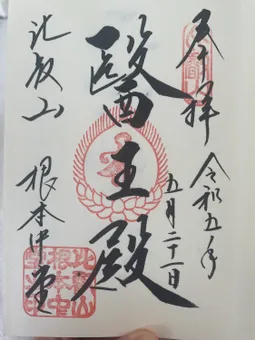 奉拝
令和五年
五月二十一日
醫王殿
比叡山
根本中堂
比叡山
根本中
堂印